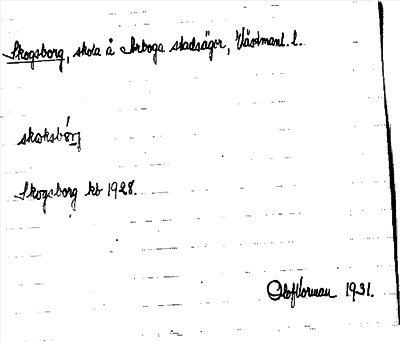 Skogsborg, skola å Arboga stadsägor, Västmanl. l.
Skogsborg kb 1928.
Olof Vorman 1931.